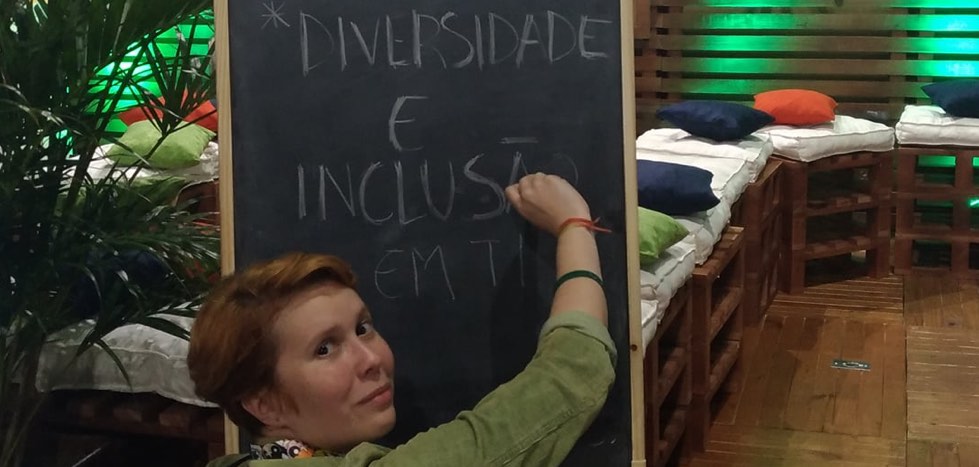 *DIVERSIDADE
E
INCLUSÃO
EM TI